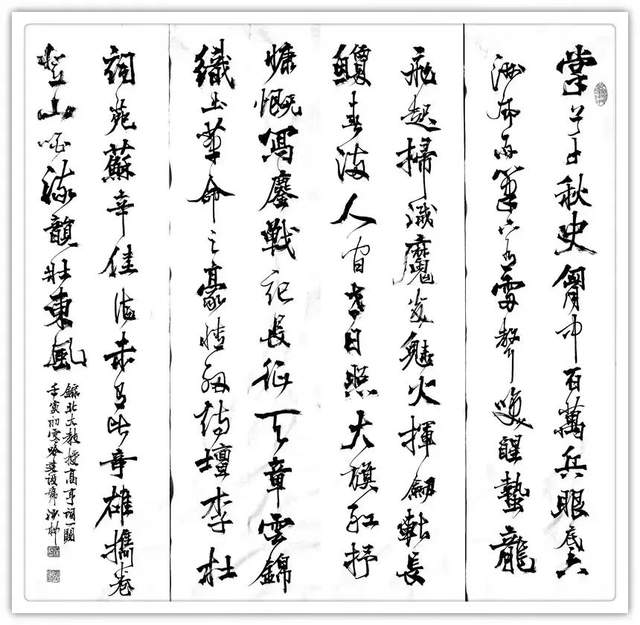 掌上千秋史胸中百萬兵眼底六
洲風雨筆下有雷聲喚醒蟄龍
飛起掃滅魔炎魅火揮劍斬長
鯨春滿人間世日照大旗紅抒
慷慨寫鏖戰記長征天章雲錦
織出革命之豪情細檢詩壇李杜
詞苑蘇辛佳作未有此奇雄攜卷
登山唱流韻壯東風
錄北大教授高亨詞一闋
壬寅初雪於建設